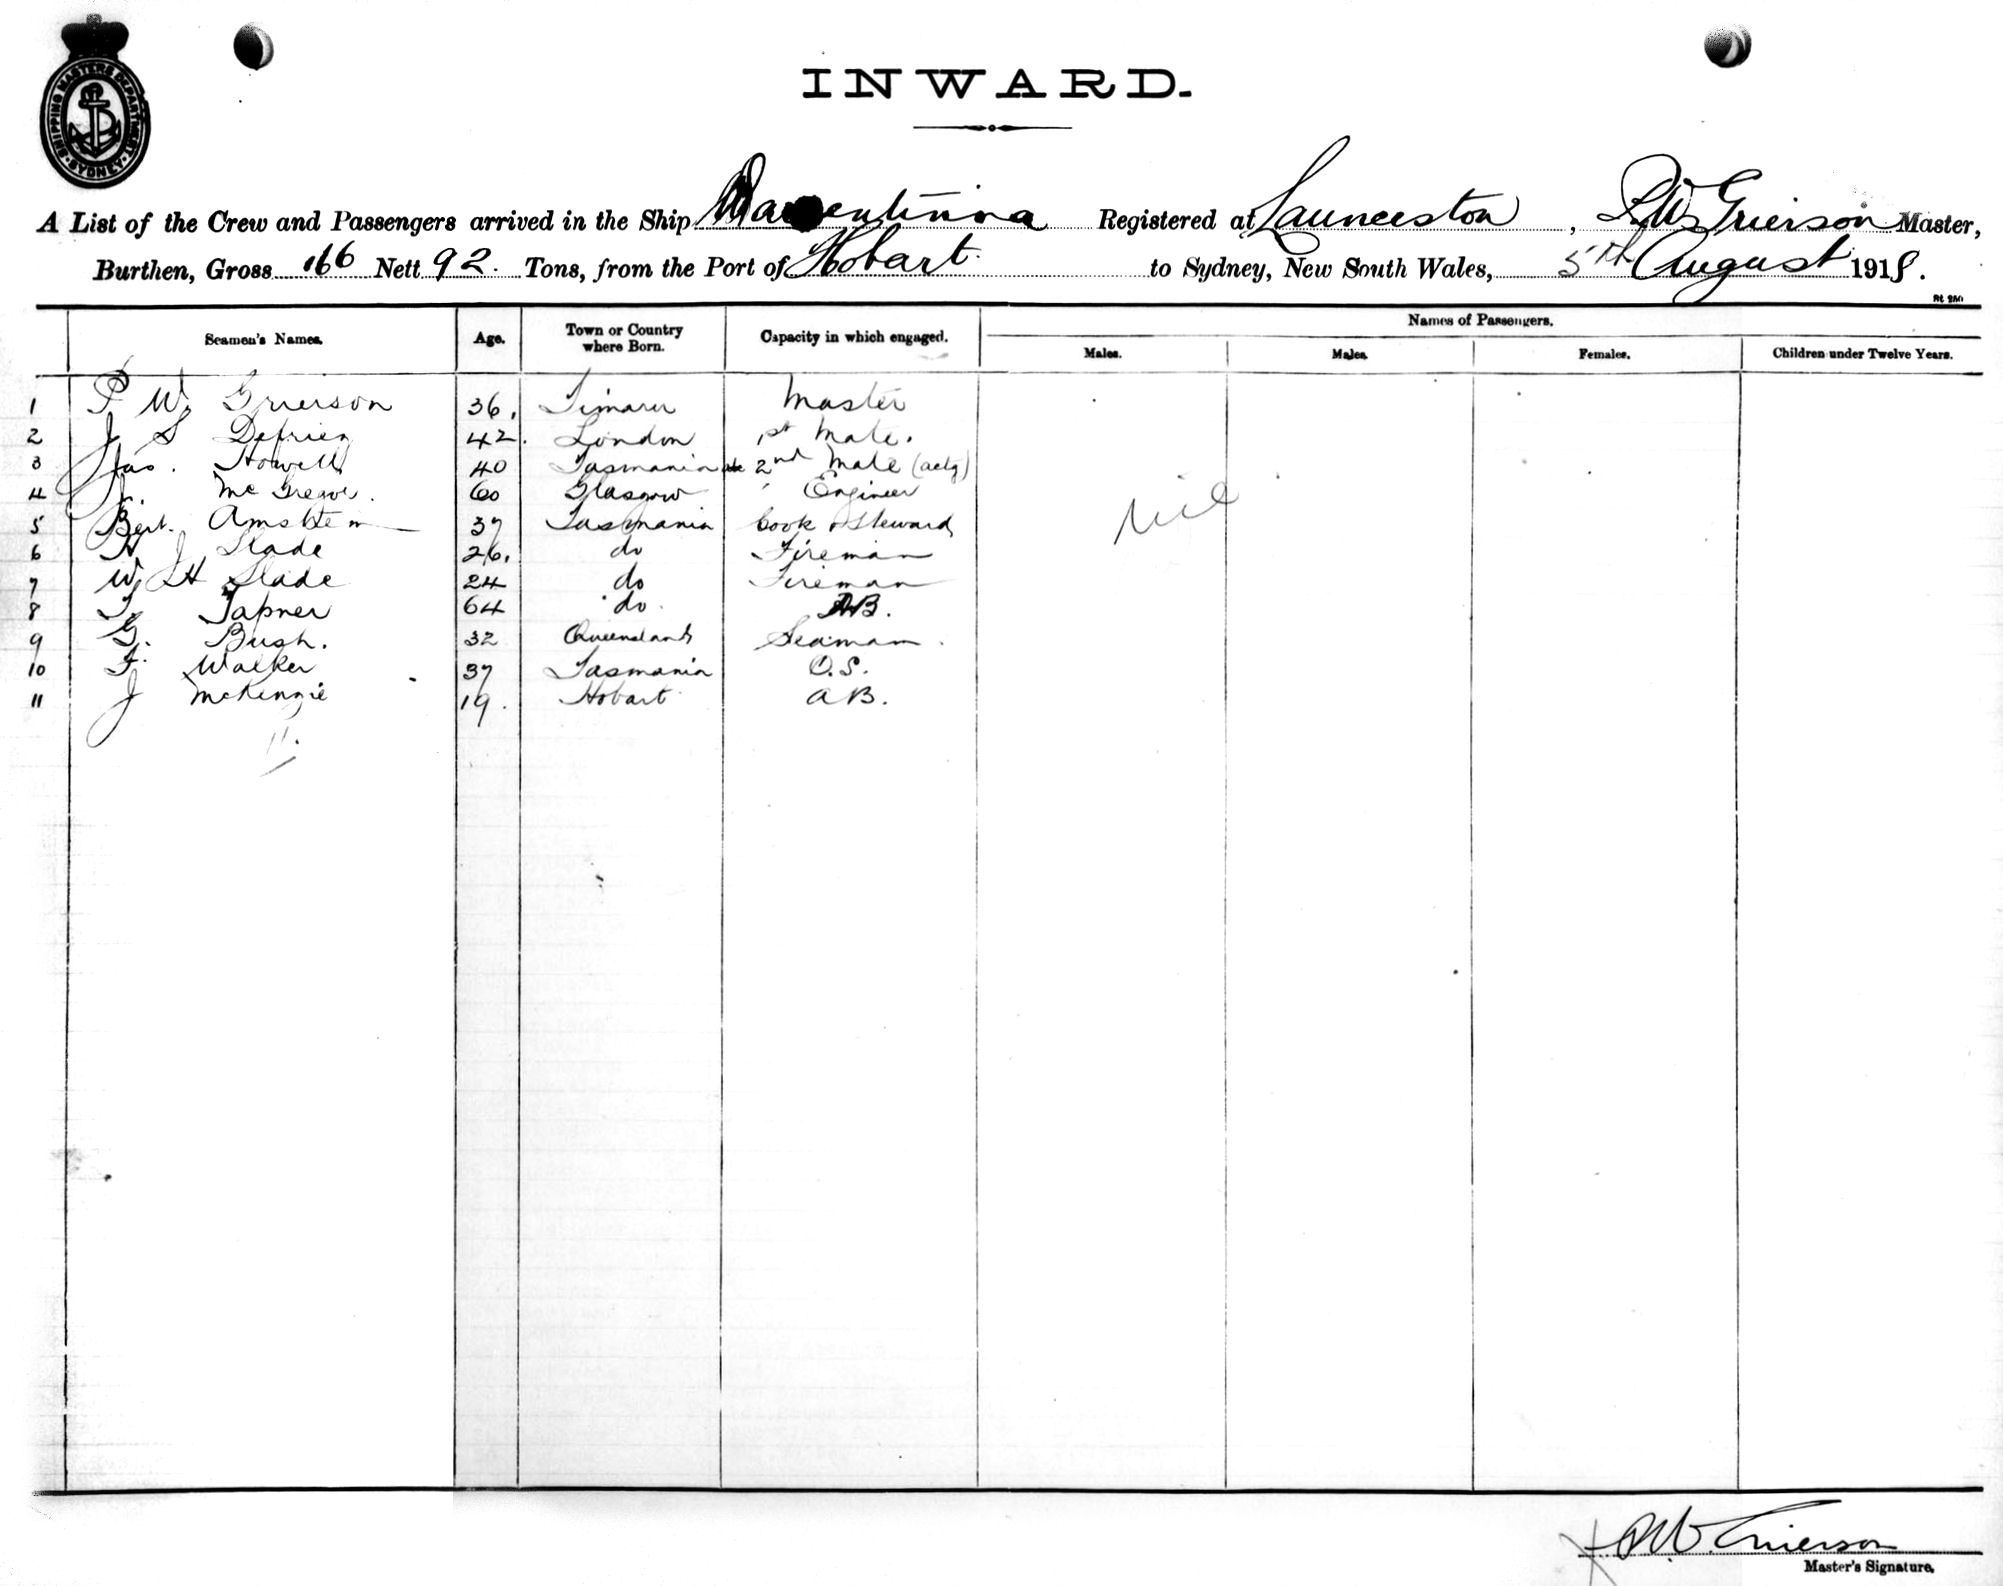 SHIPPING MASTERS DEPARTMENT SYDNEY
INWARD.
A List of the Crew and Passengers arrived in the Ship Registered at Launceston, P. W. Grierson Master,
Burthen, Gross 166 Nett 92. Tons, from the Port of Hobart to Sydney, New South Wales, 5th August 1918.
Seamen's Names. Age. Town or Country where Born. Capacity in which engaged. Names of Passengers.
Males. Males. Females. Children under Twelve Years.
1 P W Grierson 36. Timaru Master
2 J S 42. London 1st Mate.
3 Jas. Howell 40 Tasmania 2nd Mate (actg)
4 J. 60 Glasgow Engineer
Nil
5 Bert. 37 Tasmania Cook & Steward
6 H J Slade 26. do Fireman
7 W H Slade 24 do Fireman
8 T. Tapner 64 do. AB.
9 G. Bush. 32 Queensland Seaman.
10 F. Walker 37 Tasmania O.S.
11 J McKenzie 19. Hobart AB.
11.
P W. Grierson
Master's Signature.